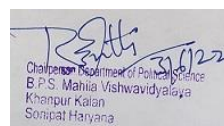 31/6/22
Chairperson Department of Political Science
B.P.S. Mahila Vishwavidyalaya
Khanpur Kalan
Sonipat Haryana